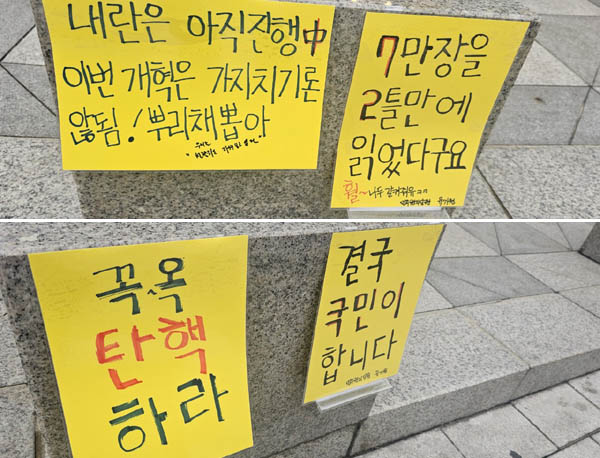 내란은 아직진행中
이번 개혁은 가지치기론
않됨! 뿌리채뽑아
7만장을
2틀만에
읽었다구요
헐~
꼭옥
탄핵
하라
결국
국민이
합니다